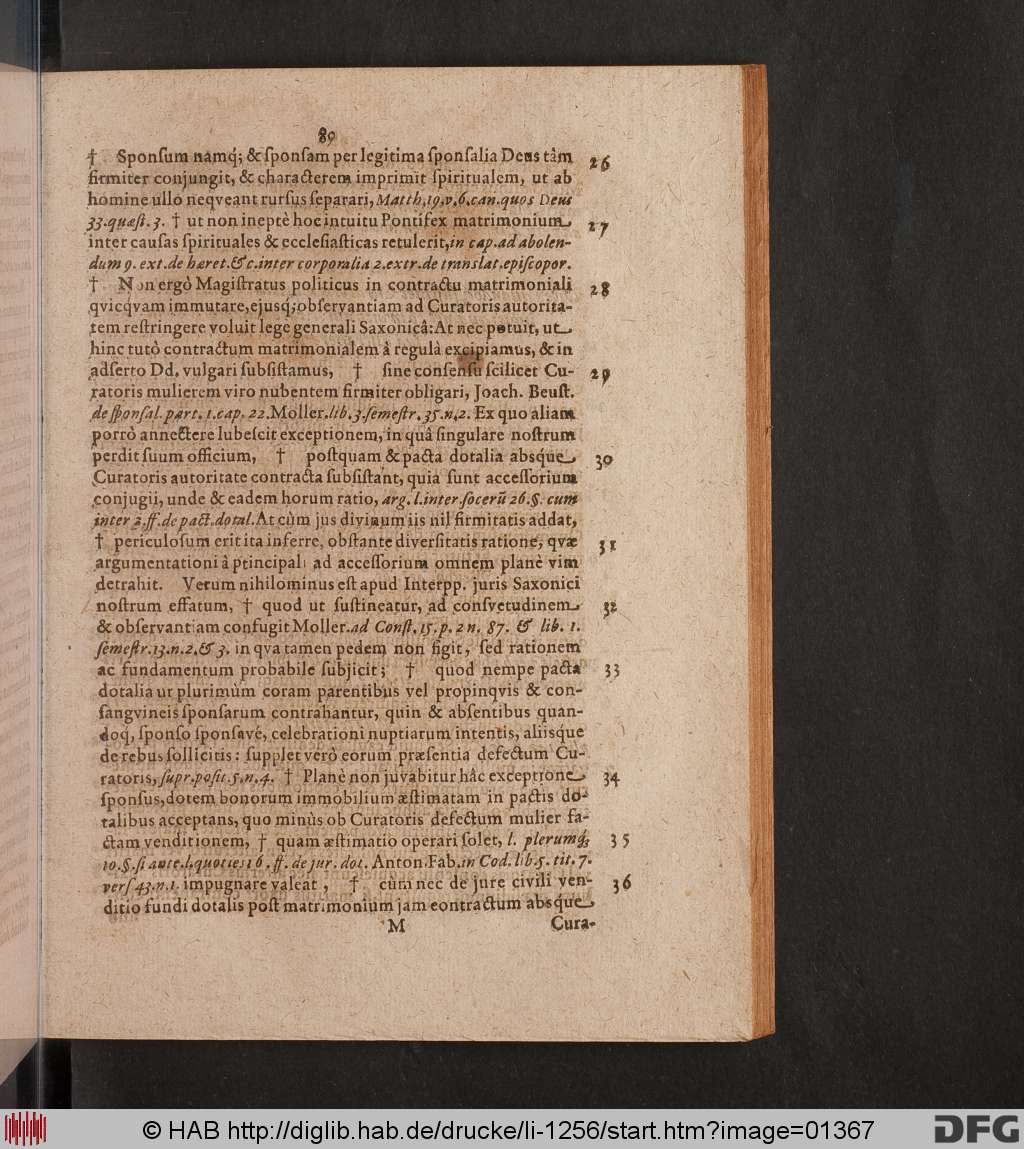 89
† Sponſum namq́; & ſponſam per legitima ſponſalia Deus tàm 26
firmiter conjungit, & characterem imprimit ſpiritualem, ut ab
homine ullo neqveant rurſus ſeparari, Matth. 19. v. 6. can. quos Deus
33. quæſt. 3. † ut non ineptè hoc intuitu Pontifex matrimonium 27
inter cauſas ſpirituales & eccleſiaſticas retulerit, in cap. ad abolen-
dum 9. ext. de hæret. & c. inter corporalia 2. extr. de translat. epiſcopor.
† Non ergò Magiſtratus politicus in contractu matrimoniali 28
qvicqvam immutare, ejusq́; obſervantiam ad Curatoris autorita-
tem reſtringere voluit lege generali Saxonicâ: At nec potuit, ut
hinc tutò contractum matrimonialem à regulà excipiamus, & in
adſerto Dd. vulgari ſubſiſtamus, † ſine conſenſu ſcilicet Cu- 29
ratoris mulierem viro nubentem firmiter obligari, Joach. Beuſt.
de ſponſal. part. 1. cap. 22. Moller. lib. 3. ſemeſtr. 35. n. 2. Ex quo aliam
porrò annectere lubeſcit exceptionem, in quâ ſingulare noſtrum
perdit ſuum officium, † poſtquam & pacta dotalia absque 30
Curatoris autoritate contracta ſubſiſtant, quia ſunt acceſſorium
conjugii, unde & eadem horum ratio, arg. l. inter ſocerũ 26. §. cum
inter 2. ff. de pact. dotal. At cùm jus divinum iis nil firmitatis addat,
† periculoſum erit ita inferre, obſtante diverſitatis ratione, qvæ 31
argumentationi â principali ad acceſſorium omnem planè vim
detrahit. Verum nihilominus eſt apud Interpp. juris Saxonici
noſtrum effatum, † quod ut ſuſtineatur, ad conſvetudinem 32
& obſervantiam confugit Moller. ad Conſt. 15. p. 2 n. 87. & lib. 1.
ſemeſtr. 13. n. 2. & 3. in qva tamen pedem non figit, ſed rationem
ac fundamentum probabile ſubjicit; † quod nempe pacta 33
dotalia ut plurimùm coram parentibus vel propinqvis & con-
ſangvineis ſponſarum contrahantur, quin & abſentibus quan-
doq́, ſponſo ſponſavé, celebrationi nuptiarum intentis, aliisque
de rebus ſollicitis: ſupplet verò eorum præſentia defectum Cu-
ratoris, ſupr. poſit. 5. n. 4. † Planè non juvabitur hâc exceptione 34
ſponſus, dotem bonorum immobilium æſtimatam in pactis do-
talibus acceptans, quo minùs ob Curatoris defectum mulier fa-
ctam venditionem, † quam æſtimatio operari ſolet, l. plerumq́; 35
10. §. ſi ante. l. quoties 16. ff. de jur. dot. Anton. Fab. in Cod. lib. 5. tit. 7.
verſ. 43. n. 1. impugnare valeat, † cùm nec de jure civili ven- 36
ditio fundi dotalis poſt matrimonium jam contractum absque
M Cura-
© HAB http://diglib.hab.de/drucke/li-1256/start.htm?image=01367
DFG